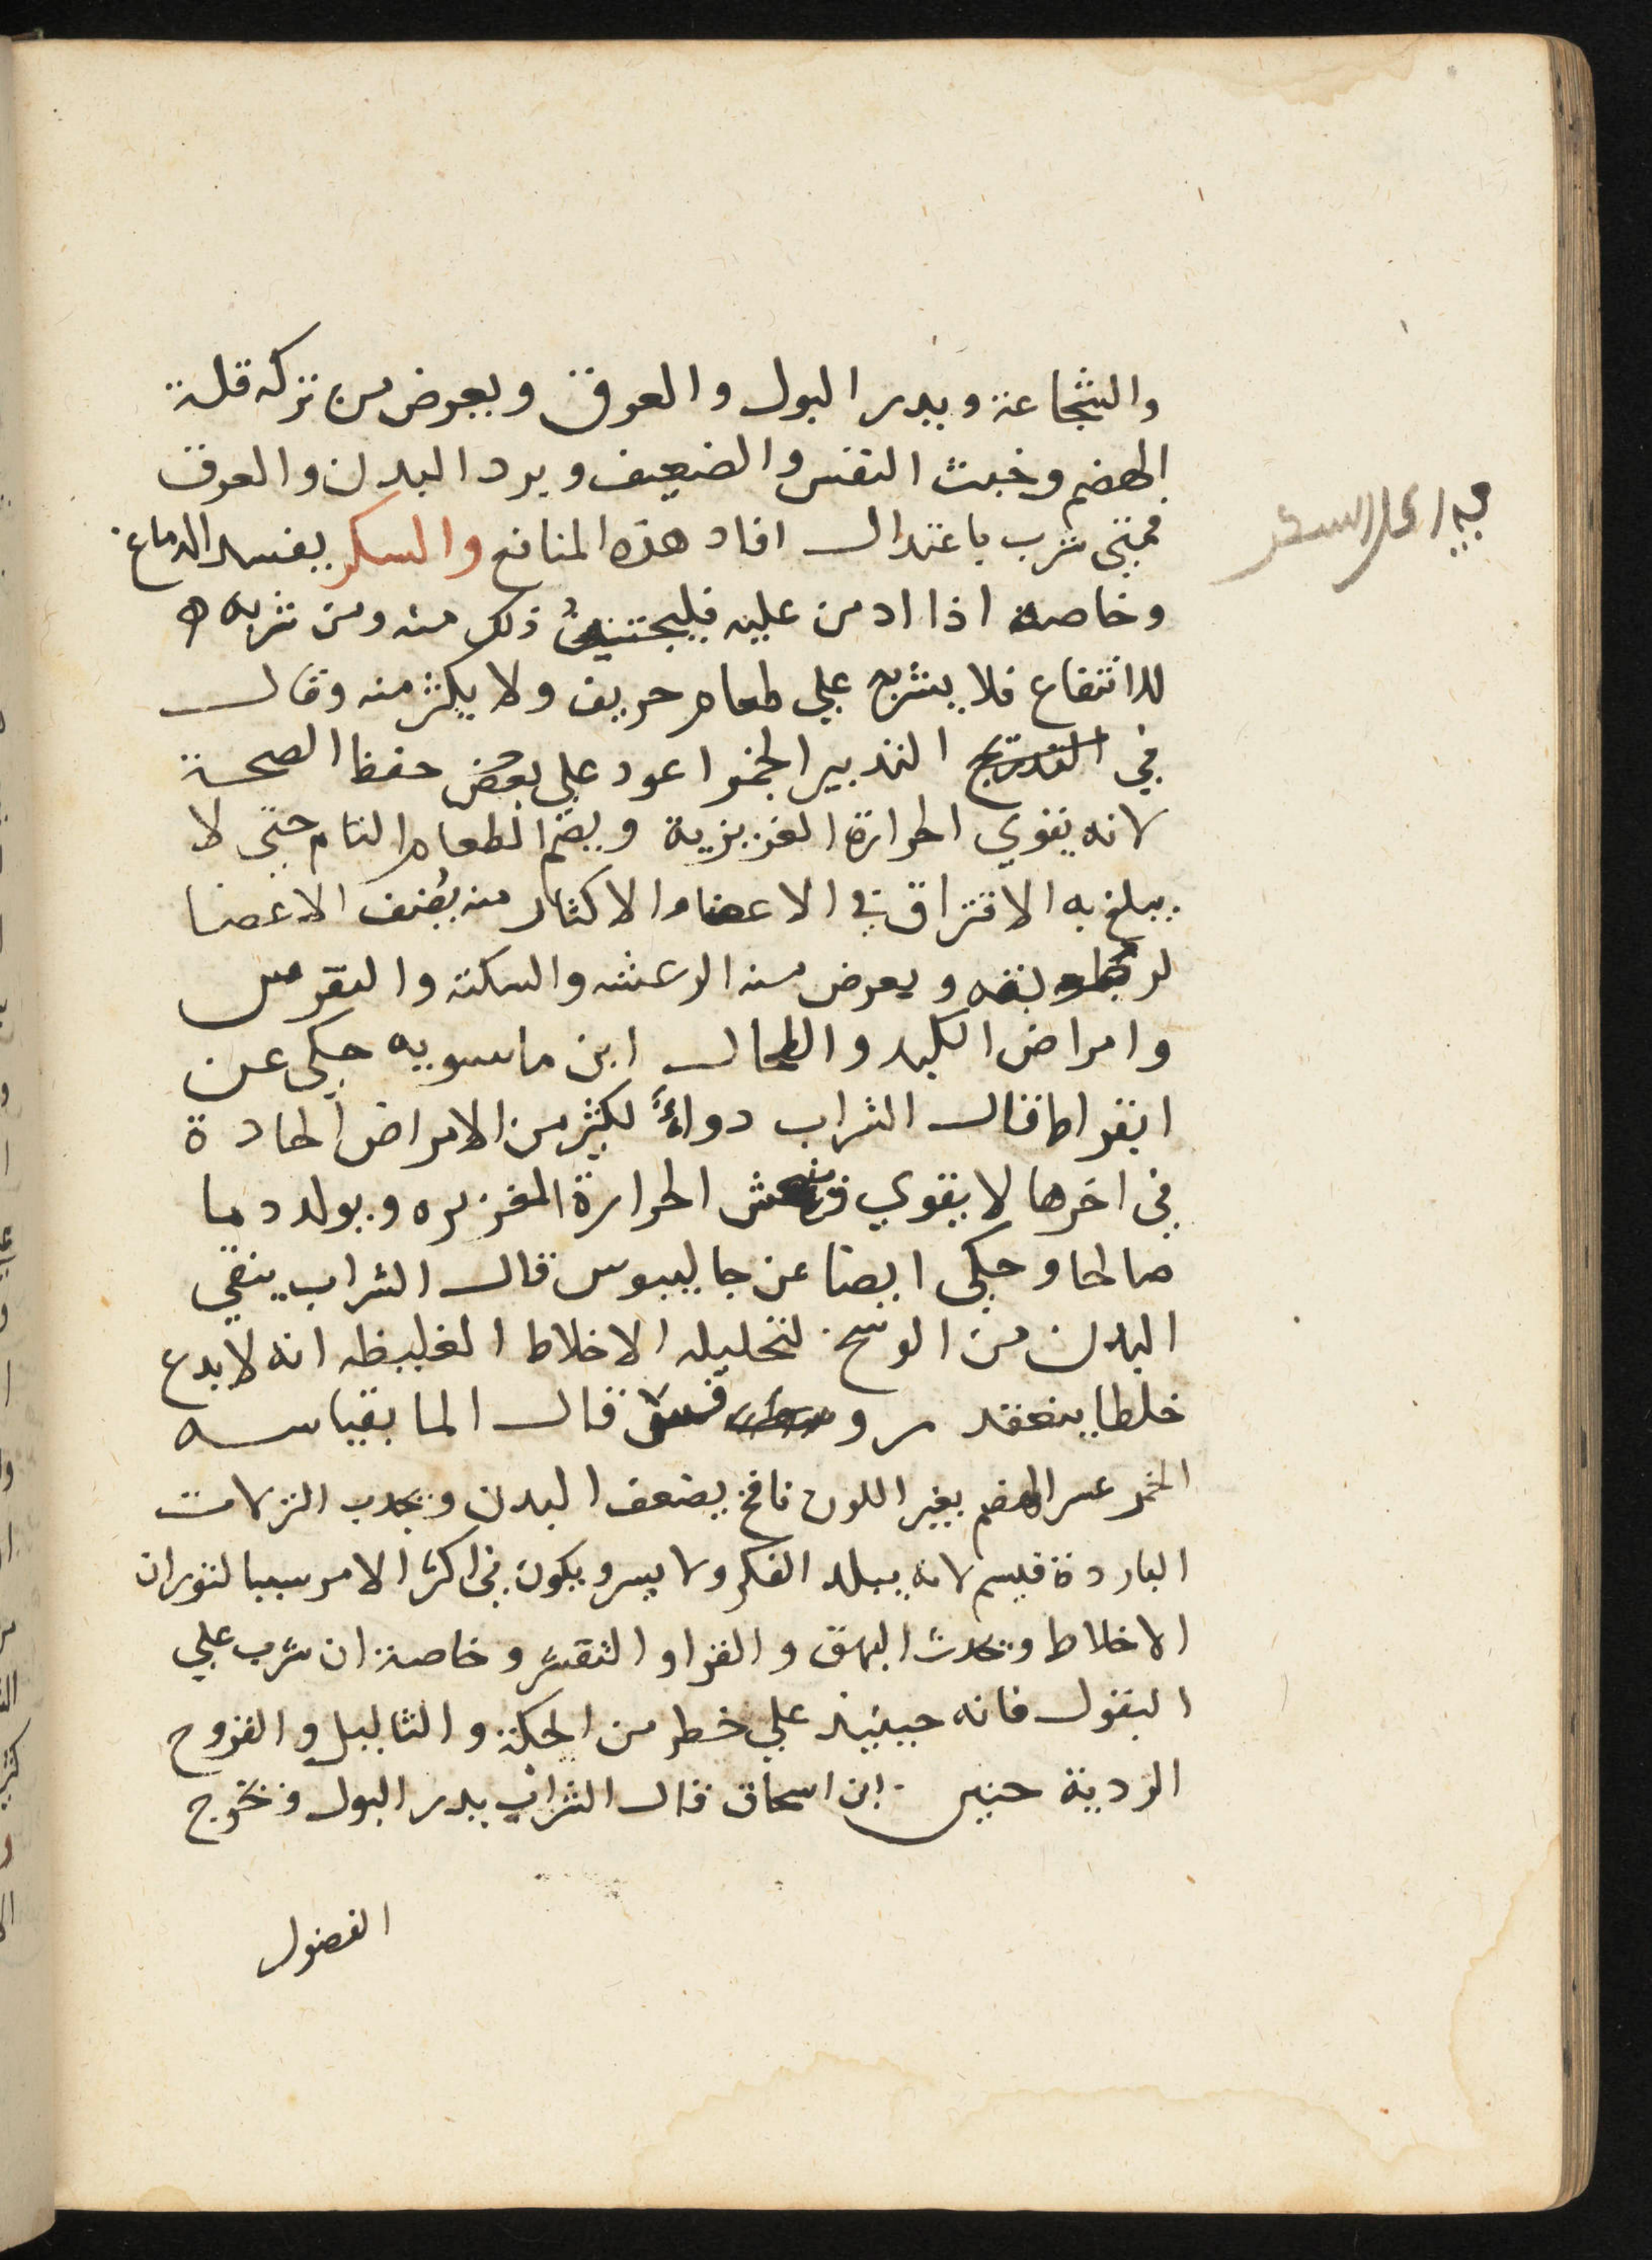 والشجاعة ويدر البول والعرق ويعرض من تركه قلة
الهضم وخبث النفس والضعيف وبرد البدن والعرق
فمتى شرب باعتدال افاد هذه المنافع والسكر يفسد الدماغ
وخاصة اذا ادمن عليه فليجتنب ذلك منه ومن شربه
للانتفاع فلا يشربه علي طعام حريف ولا يكثر منه وقال
في التدبير الخمر اعود علي بعض حفظ الصحة
لانه يقوي الحرارة الغزيزية ويهضم الطعام التام حتى لا
يبلغ به الافتراق في الاعضا والاكثار منه يضعف الاعضا
ويعرض منه الرعشه والسكتة والنقرس
وامراض الكبد والطحال ابن ماسويه حكى عن
ابقراط قال الشراب دواءً لكثير من الامراض الحادة
في اخرها لا يقوي الحرارة الغزيره ويولد دما
صالحا وحكى ايضا عن جالينوس قال الشراب ينقي
البدن من الوسخ لتحليله الاخلاط الغليظه انه لا يدع
خلطا ينعقد قال
الخمر عسر الهضم يغير اللون نافخ يضعف البدن ويجدب النزلات
الباردة لانه يبلد الفكر ولا يسر ويكون في اكثر الامر سببا لثوران
الاخلاط ويحدث البهق والتقشر وخاصة ان شرب علي
البقول فانه حينيذ علي خطر من الحكة والثاليل والقروح
الردية حنين ابن اسحاق قال الشراب يدر البول ويخرج
الفضول